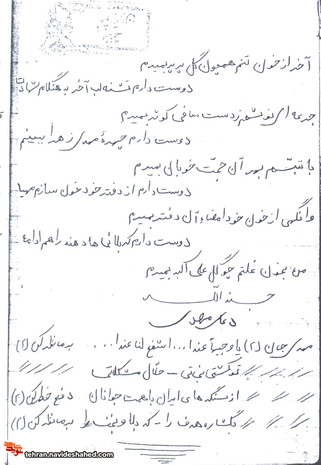 آخر از خون تنم همچون گل پرپر بمیرم
دوست دارم تشنه لب آخر به هنگام شهادت
جرعه ای نوشم ز دست ساقی کوثر بمیرم
دوست دارم چهرهٔ مهدی زهرا ببینم
با تبسم بور آن حجت خوبالی بمیرم
دوست دارم از دفتر خود خون سازم مهیا
وانگهی از خون خود امضاء آن دفتر بمیرم
دوست دارم کربلائی ها دهند راهم ادامه
من بخون غلتم چو گل علی اکبر بمیرم
جند الله
دعای مهدی
مهدی جان (۲) یا وجیهاً عندا... اشفع لنا عندا... بر ما نظر کن (۲)
〃 〃 〃 تو کشتی نجاتی - حلال مشکلاتی 〃 〃 〃 〃
〃 〃 〃 از سنگرهای ایران با همت جوانان دفع خطر کن (۲)
〃 〃 〃 بگشا ره هدف را - که بلا و نجف بر ما نظر کن (۲)
tehran.navideshahed.com